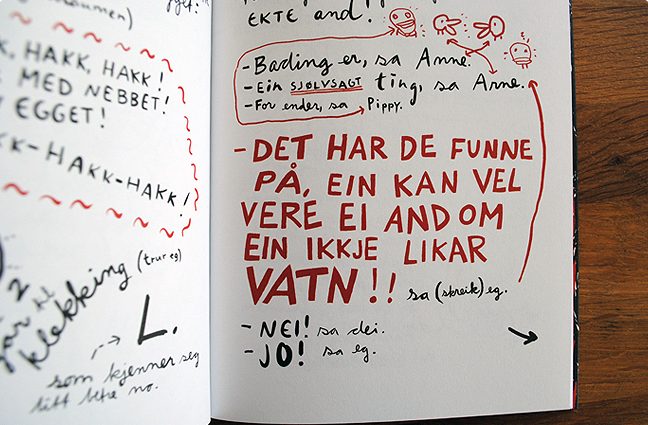 HAKK, HAKK!
MED NEBBET!
EGGET!
-HAKK-HAKK!
klekking (trur eg)
L.
som kjenner seg
litt betre no.
EKTE and!
- Bading er, sa Anne.
- Ein SJØLVSAGT ting, sa Arne.
- For ender, sa Pippy.
- DET HAR DE FUNNE
PÅ, EIN KAN VEL
VERE EI AND OM
EIN IKKJE LIKAR
VATN!! sa (skreik) eg.
- NEI! sa dei.
- JO! sa eg.